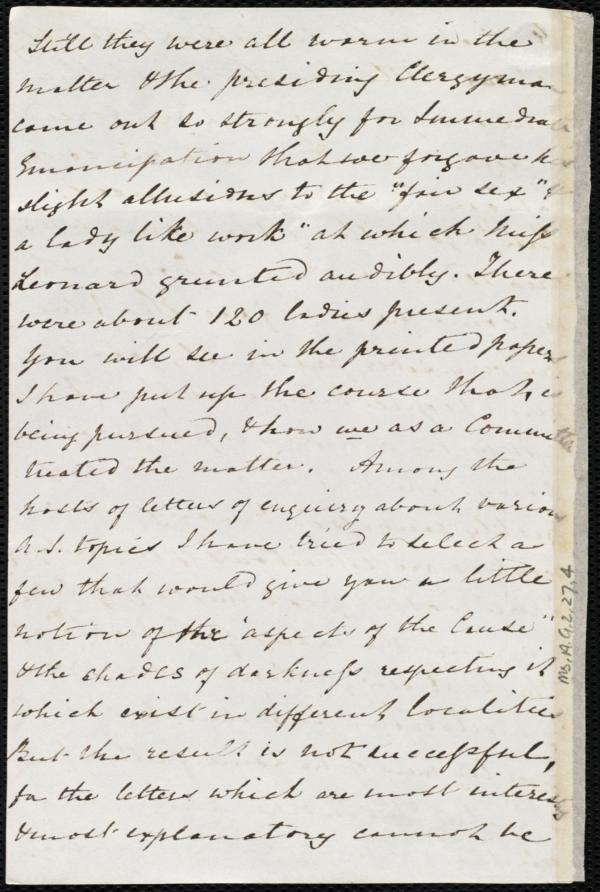 Still they were all warm in the
matter & the presiding Clergyman
came out so strongly for Immediate
Emancipation that we forgave his
slight allusions to the "fair sex" &
a lady like work" at which Miss
Leonard grunted audibly. There
were about 120 ladies present.
You will see in the printed paper
I have put up the course that is
being pursued, & how we as a Committee
treated the matter. Among the
hosts of letters of enquiry about various
A.S. topics I have tried to select a
few that would give you a little
notion of the "aspects of the Cause"
& the shades of darkness respecting it
which exist in different localities
But the result is not successful,
for the letters which are most interesting
& most explanatory cannot be
Ms.A.9.2.27.4